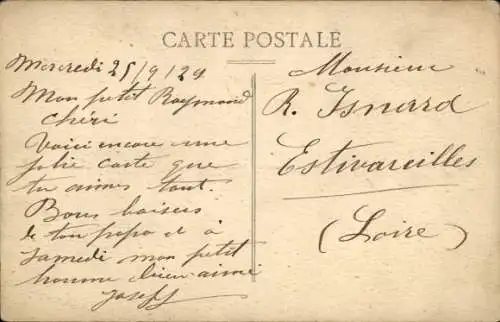 CARTE POSTALE
Mercredi 25/9/29
Mon petit Raymond
chéri
Voici encore une
jolie carte que
tu aimes tant.
Bons baisers
de ton papa et à
samedi mon petit
homme bien-aimé
Joseph
Monsieur
R. Isnard
Estivareilles
(Loire)